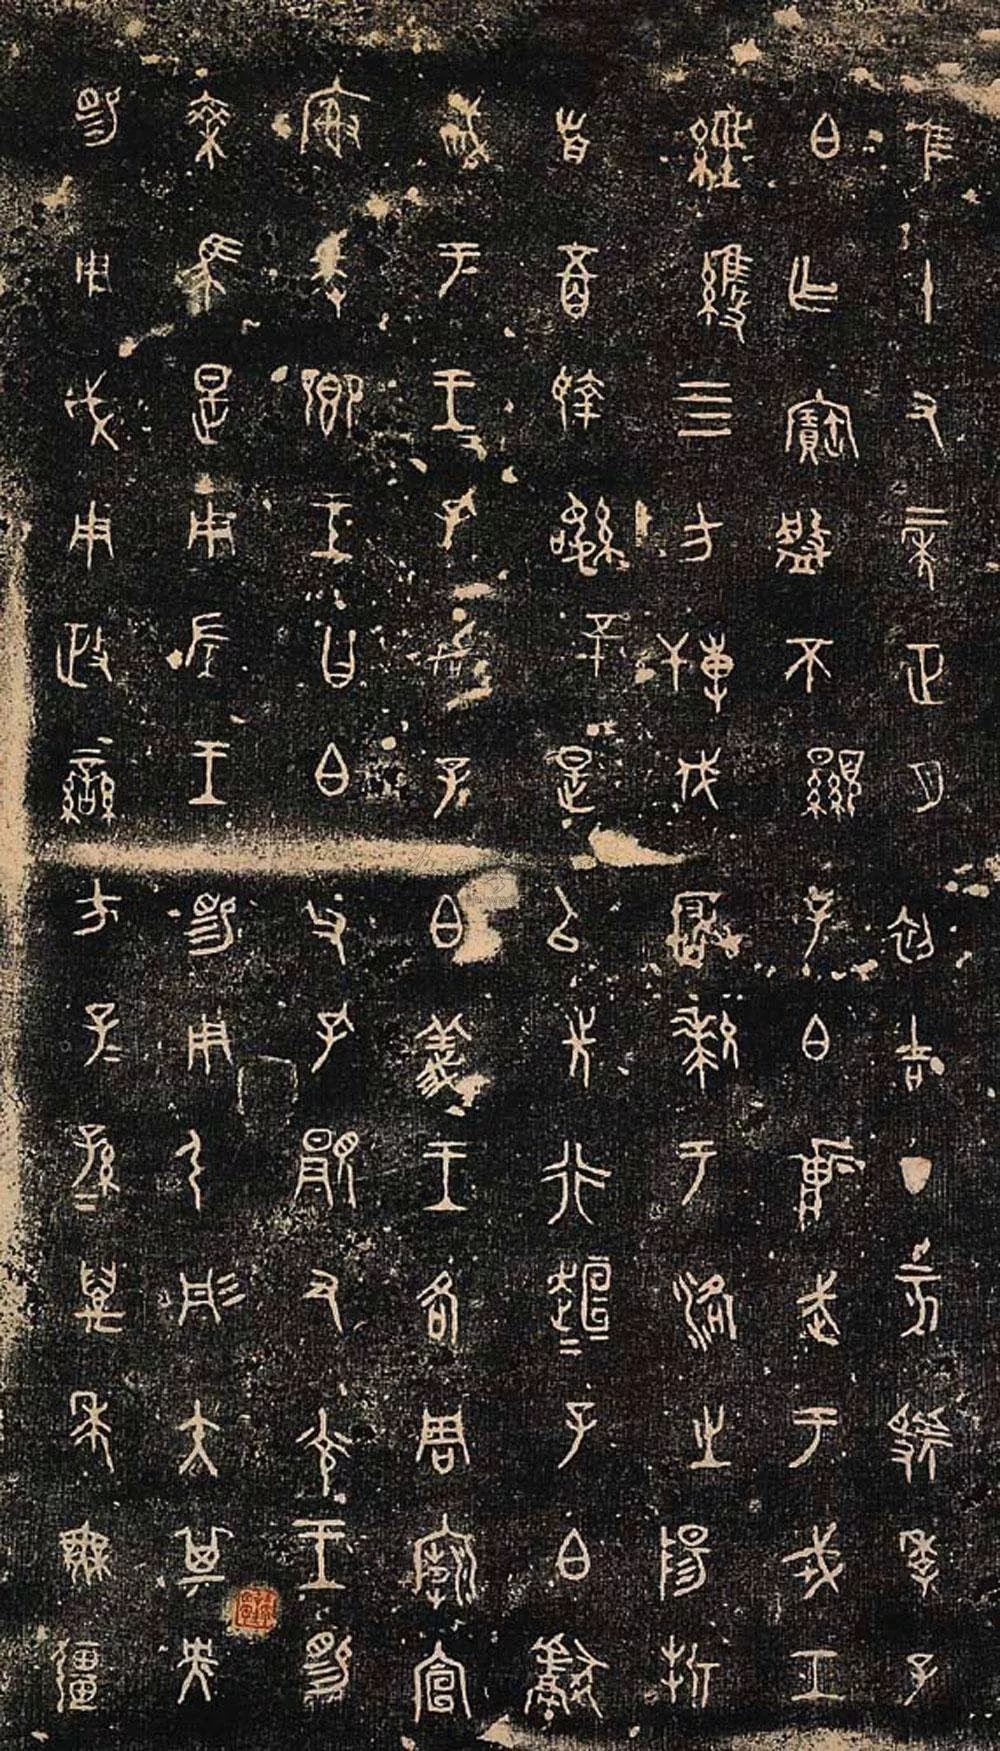 隹十又二年正月初吉丁亥虢季子
白乍寶盤不顯子白𤕌武于戎工
經維四方搏伐玁狁于洛之陽折
首五百執訊五十是以先行桓桓子白獻
聝于王王孔加子白義王各周廟宣
廟爰鄉王曰白父孔顯又光王睗
乘馬是用左王睗用弓彤矢其央
睗用戉用政蠻方子子孫孫萬年無疆